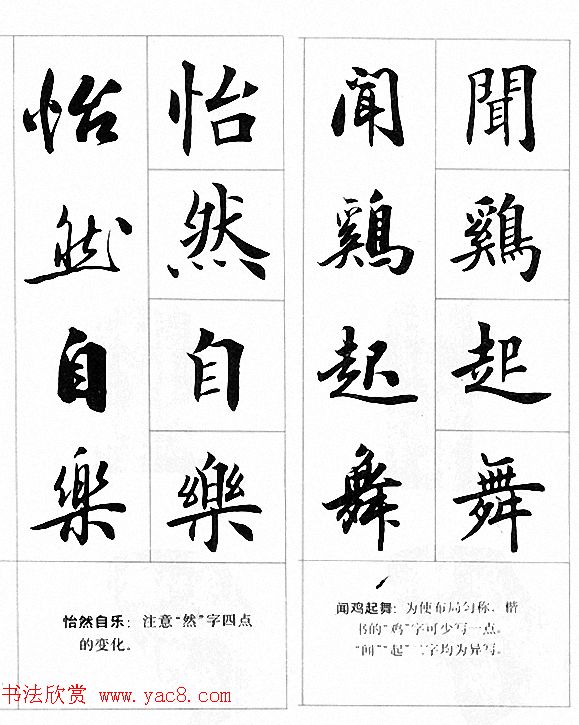 聞鷄起舞
聞鷄起舞
怡然自樂
怡然自樂
闻鸡起舞：为使布局匀称，楷
书的“鸡”字可少写一点。
“闻”“起”二字均为异写。
怡然自乐：注意“然”字四点
的变化。
书法欣赏 www.yac8.com